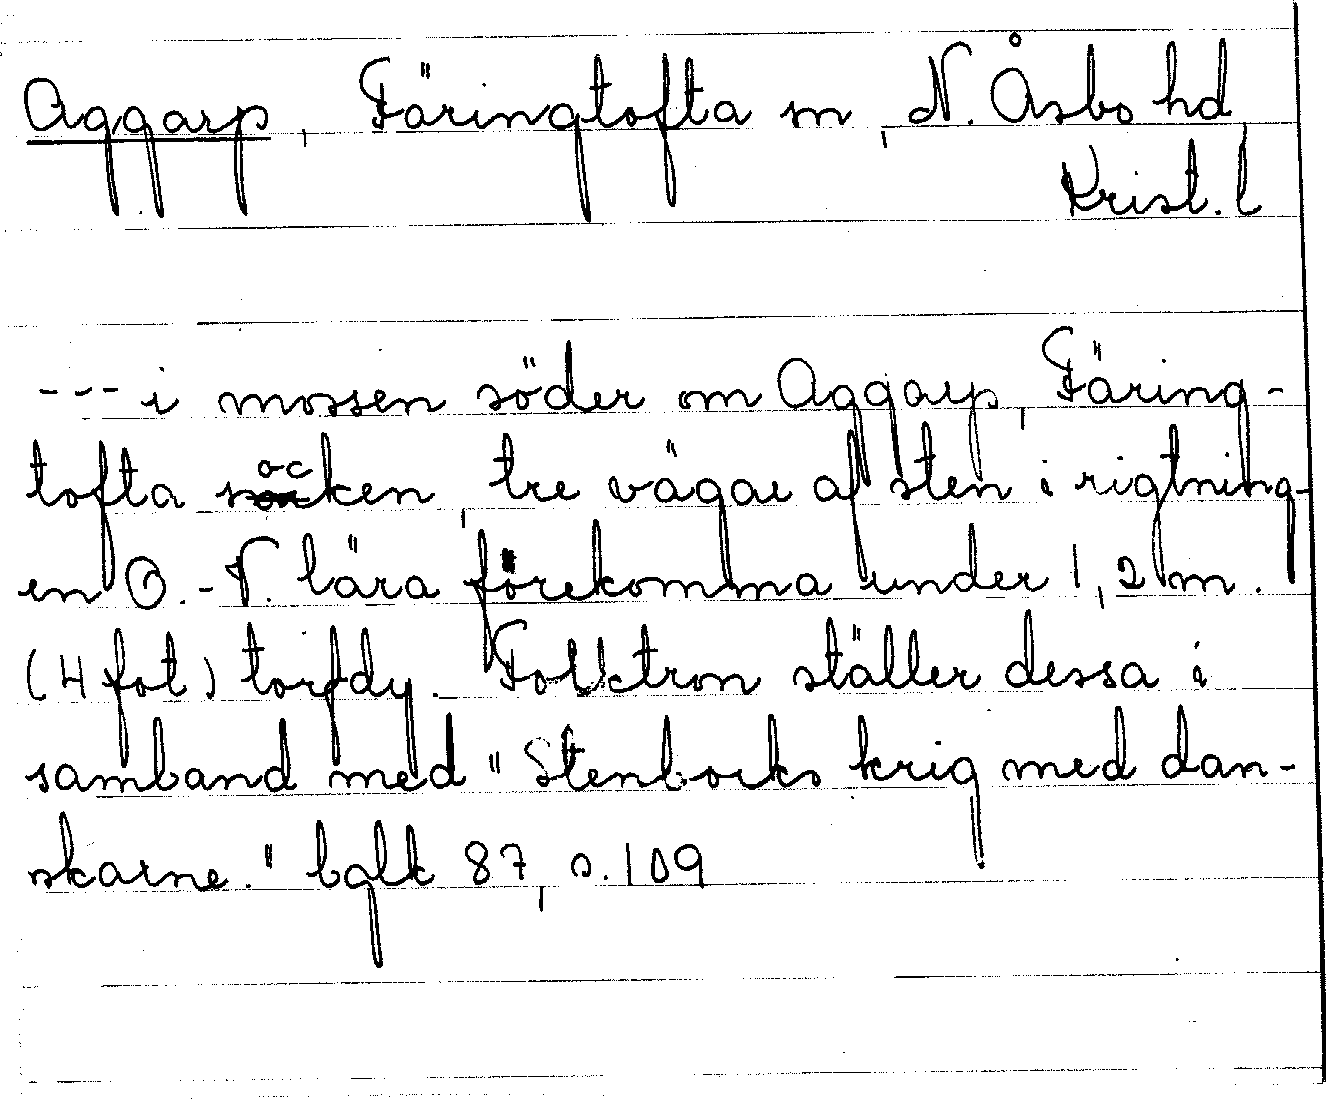 Aggarp, Färingtofta sn, N. Åsbo hd
Krist. l
--- i mossen söder om Aggarp, Färing-
tofta socken, tre vägar af sten i rigtning-
en O.-V. lära förekomma under 1,2 m.
(4 fot) torfdy. Folktron ställer dessa i
samband med "Stenbocks krig med dan-
skarne." bglk 87, s. 109